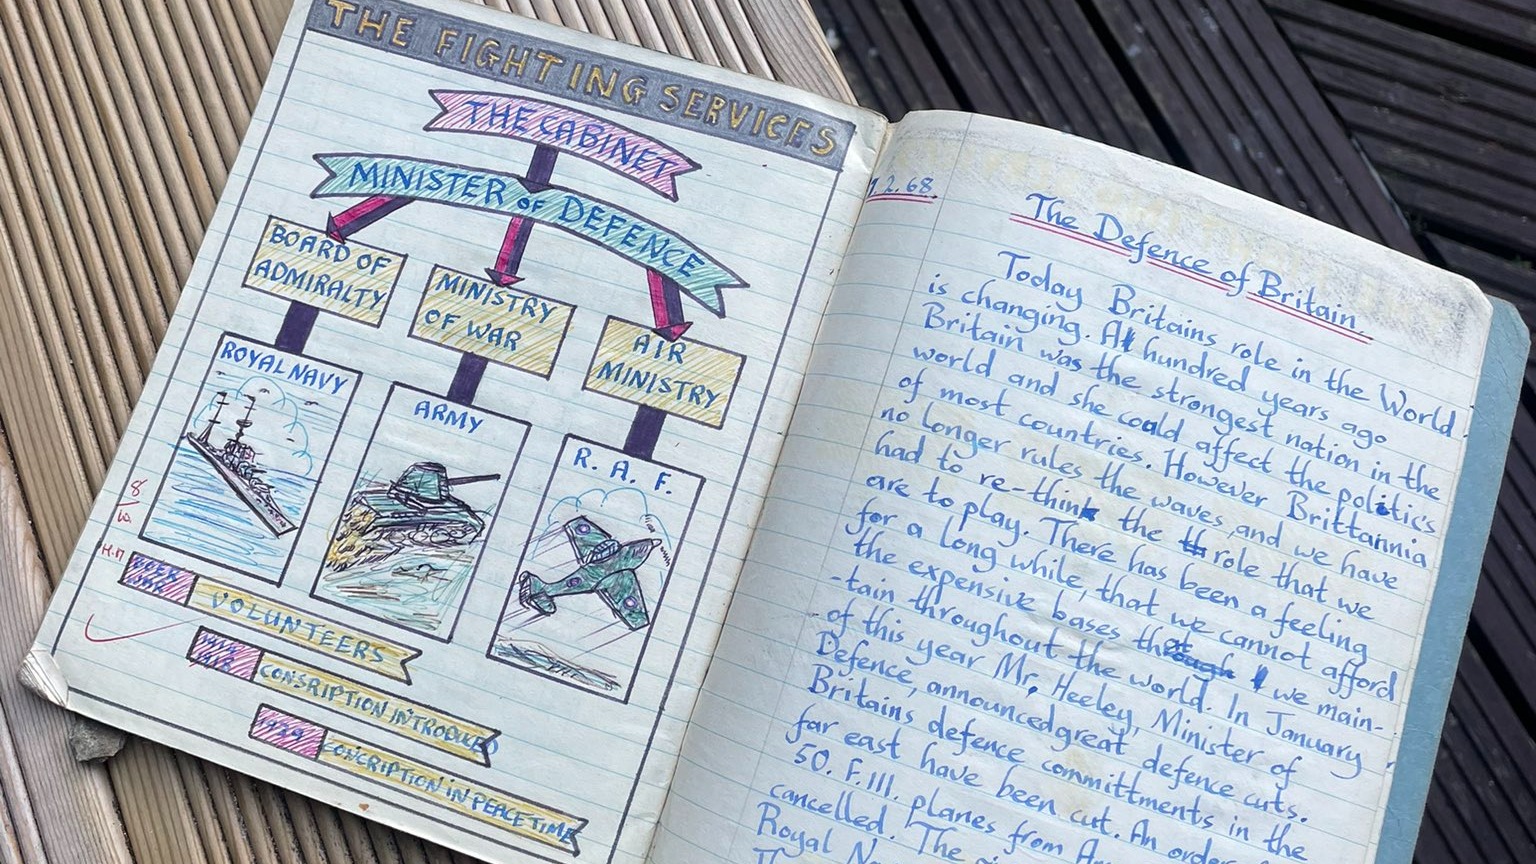 THE FIGHTING SERVICES
THE CABINET
MINISTER OF DEFENCE
BOARD OF
ADMIRALTY
MINISTRY
OF WAR
AIR
MINISTRY
ROYAL NAVY
ARMY
R. A. F.
8
10
H.M
VOLUNTEERS
CONSRIPTION INTRODUCED
CONCRIPTION IN PEACE TIME
.2.68.
The Defence of Britain.
Today Britains role in the World
is changing. A hundred years ago
Britain was the strongest nation in the
world and she could affect the politics
of most countries. However Brittannia
no longer rules the waves, and we have
had to re-think the role that we
are to play. There has been a feeling
for a long while, that we cannot afford
the expensive bases that we main-
-tain throughout the world. In January
of this year Mr. Heeley, Minister of
Defence, announced great defence cuts.
Britains defence committments in the
far east have been cut. An order
50. F.III. planes from
cancelled. The
Royal